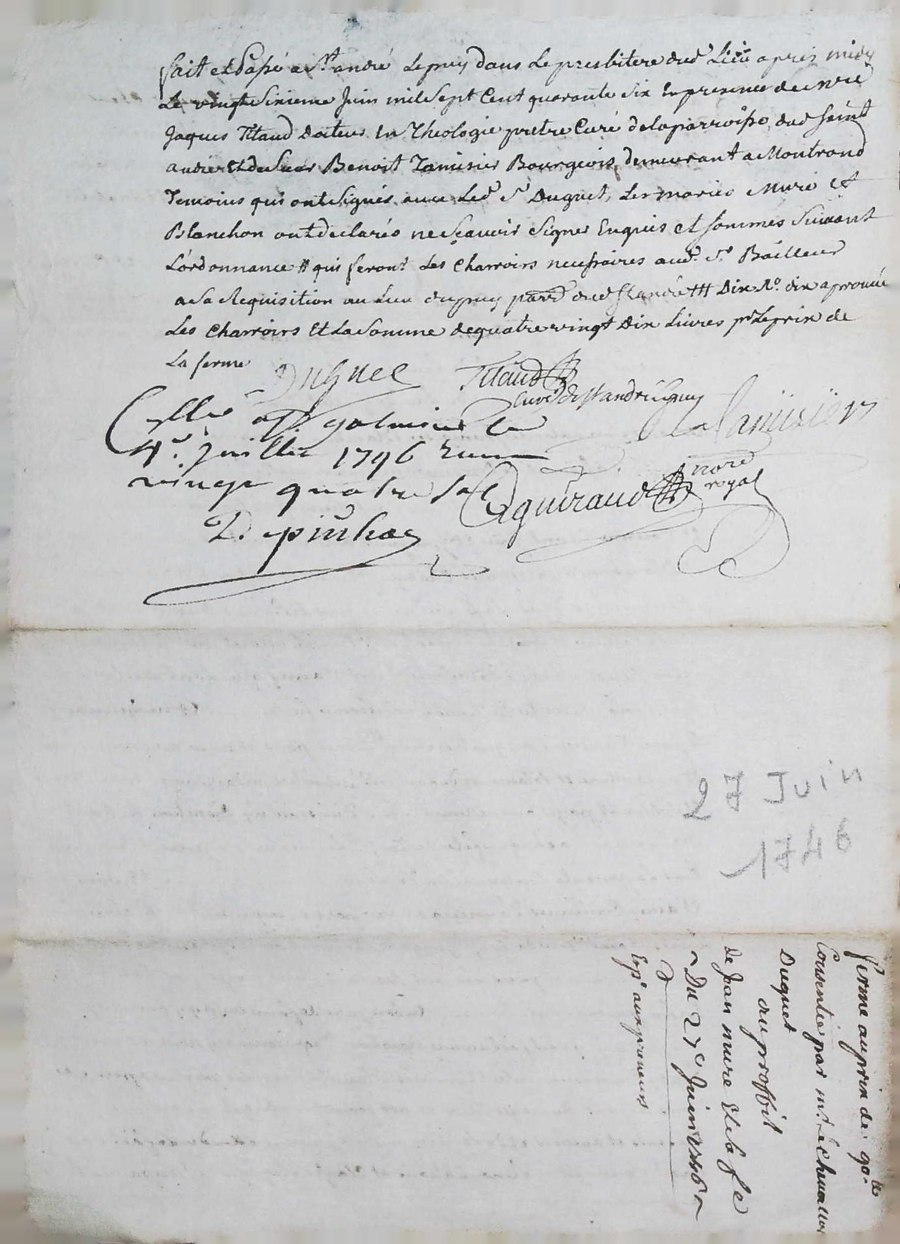 fait et Passé a St. andré Lepuy dans Le presbitere dud. Lieu apres midy
Le vingt Sixieme Juin mil Sept Cent quarante Six En presence de mre
Jaques Titaud Docteur En Theologie pretre Curé de la parroisse dud Saint
andre Et de Sieur Benoit Tamisier Bourgeois, demeurant a Montrond
Temoins qui ont Signés avec Led. Sr. Duguet, Les mariés Mure Et
Blanchon ont declarés ne Sçavoir Signer Enquis et Sommés Suivant
Lórdonnance # qui feront Les Charroirs necessaires aud. Sr. Bailleur
a Sa Requisition au Lieu dupuy dud St andré Dix Ro. dix aprouvé
Les Charroirs Et La Somme de quatre vingt Dix Livres pr Le prix de
La ferme
Duguet
Titaud
Curé de St andré le puy
Tamisier
Cllé a St galmier Le
4e. Juillet 1746 Recu
vingt quatre Sols
Depinhac
Aguiraud nore
royal
27 Juin
1746
ferme au prix de 90 ll
Consentie par mr. Le chevallier
Duguet
au proffit
de Jean mure Et Sa fe
Du 27e Juin 1746
Expt. aux preneurs